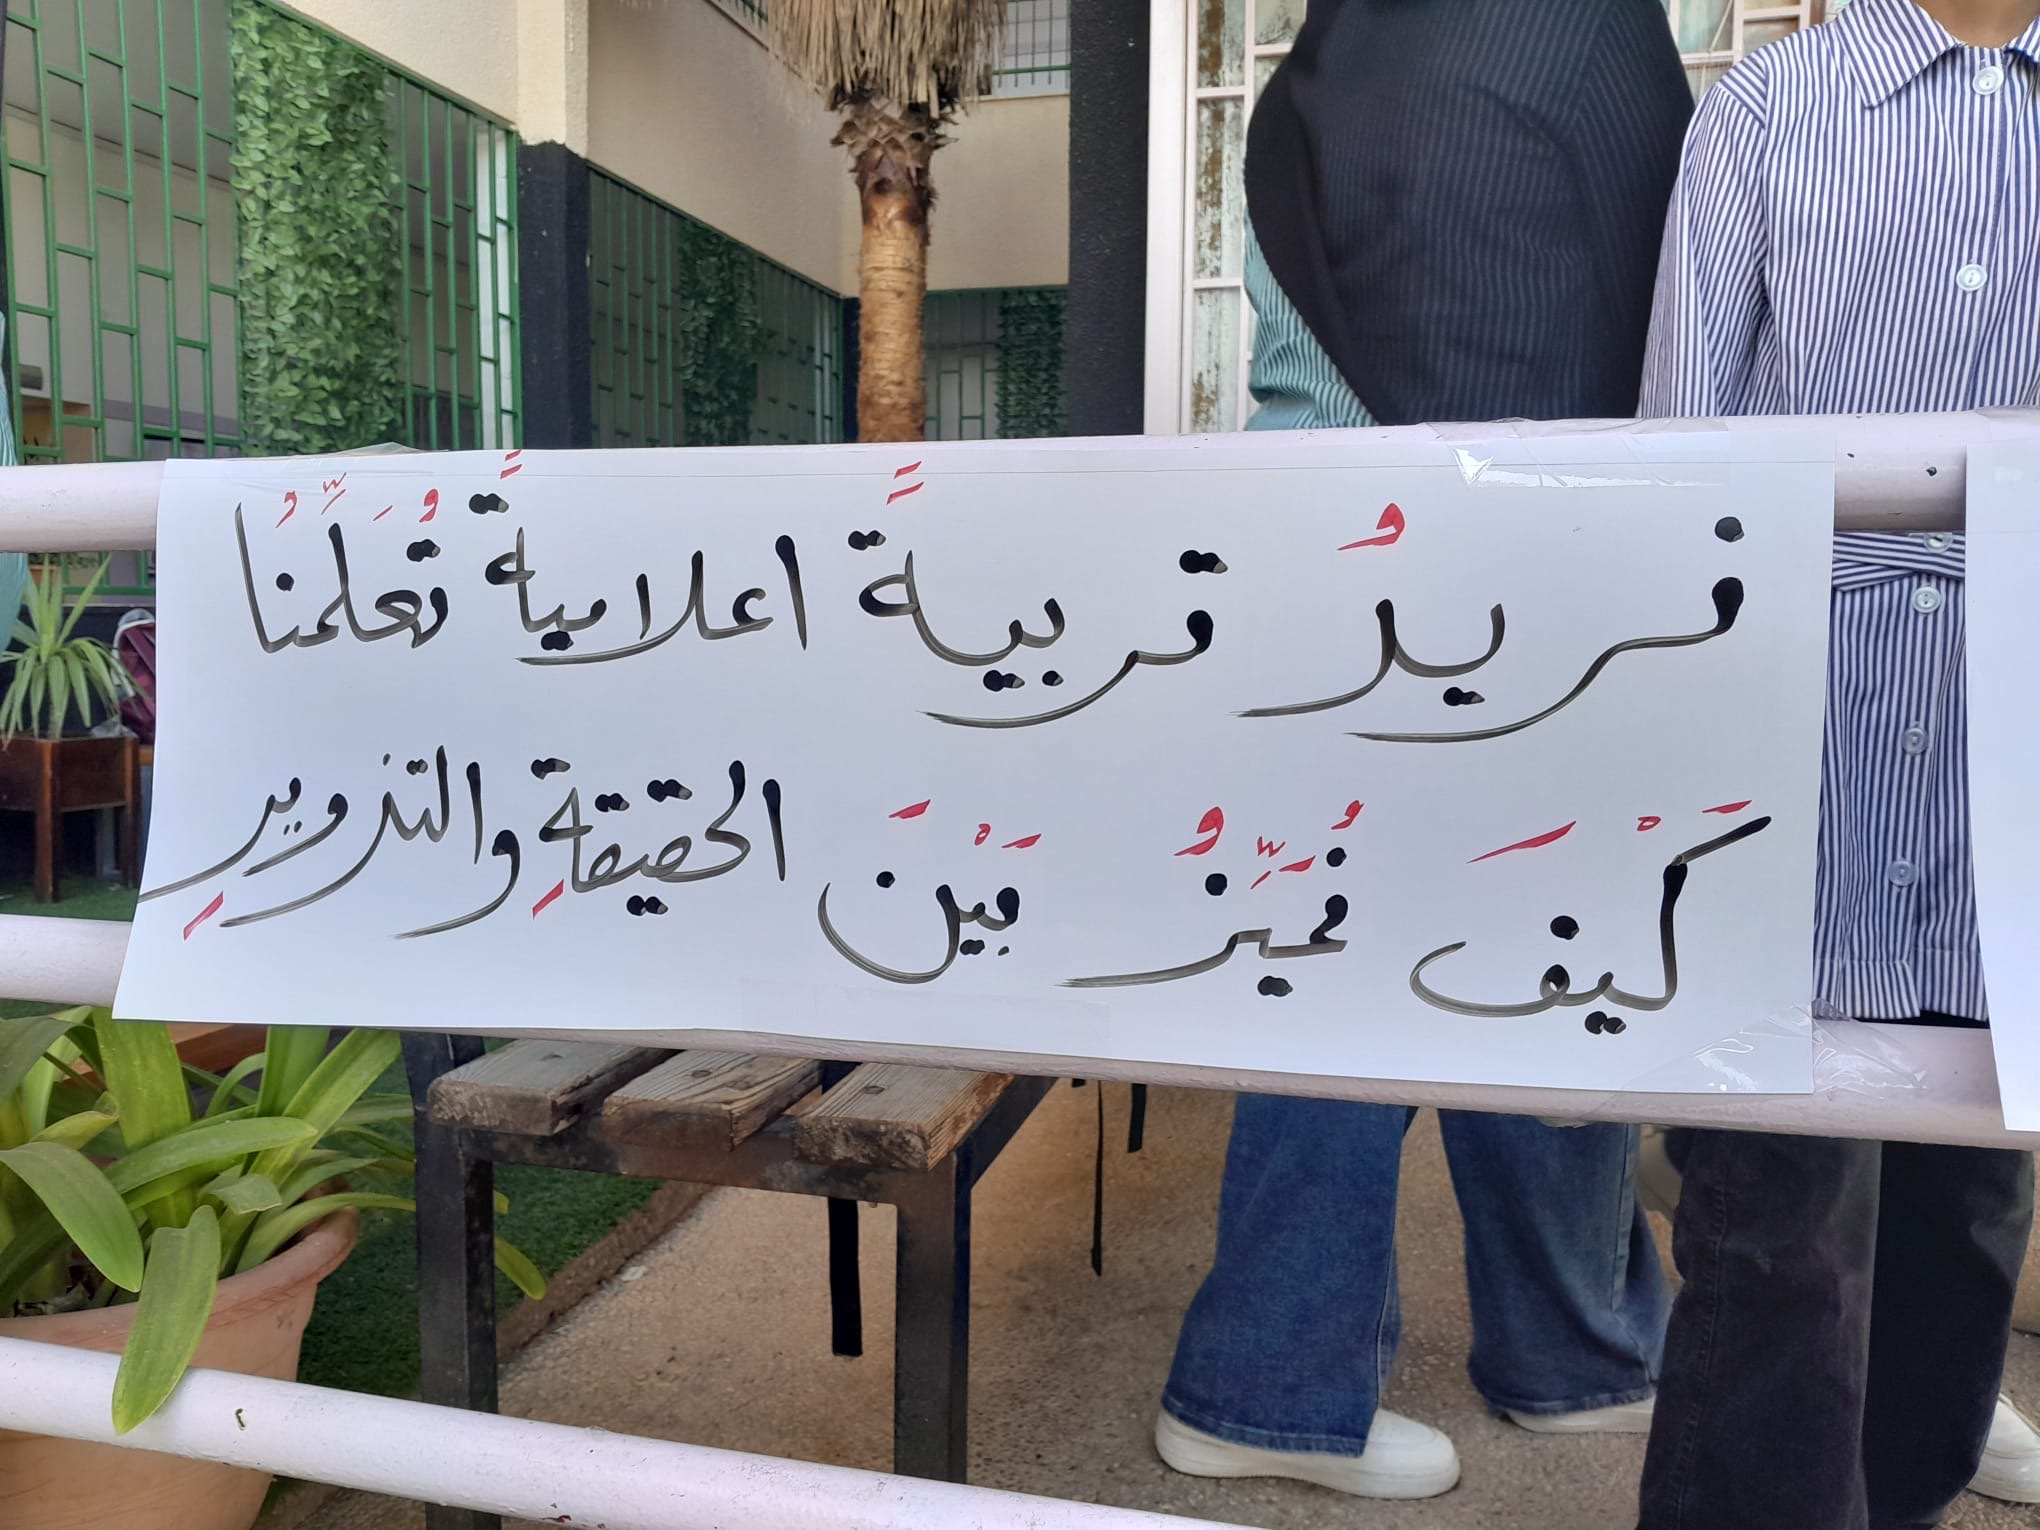 نريدُ تربيةً اعلاميةً تُعَلِّمُنا
كَيْفَ نُمَيِّزُ بَيْنَ الحقيقةِ والتزويرِ